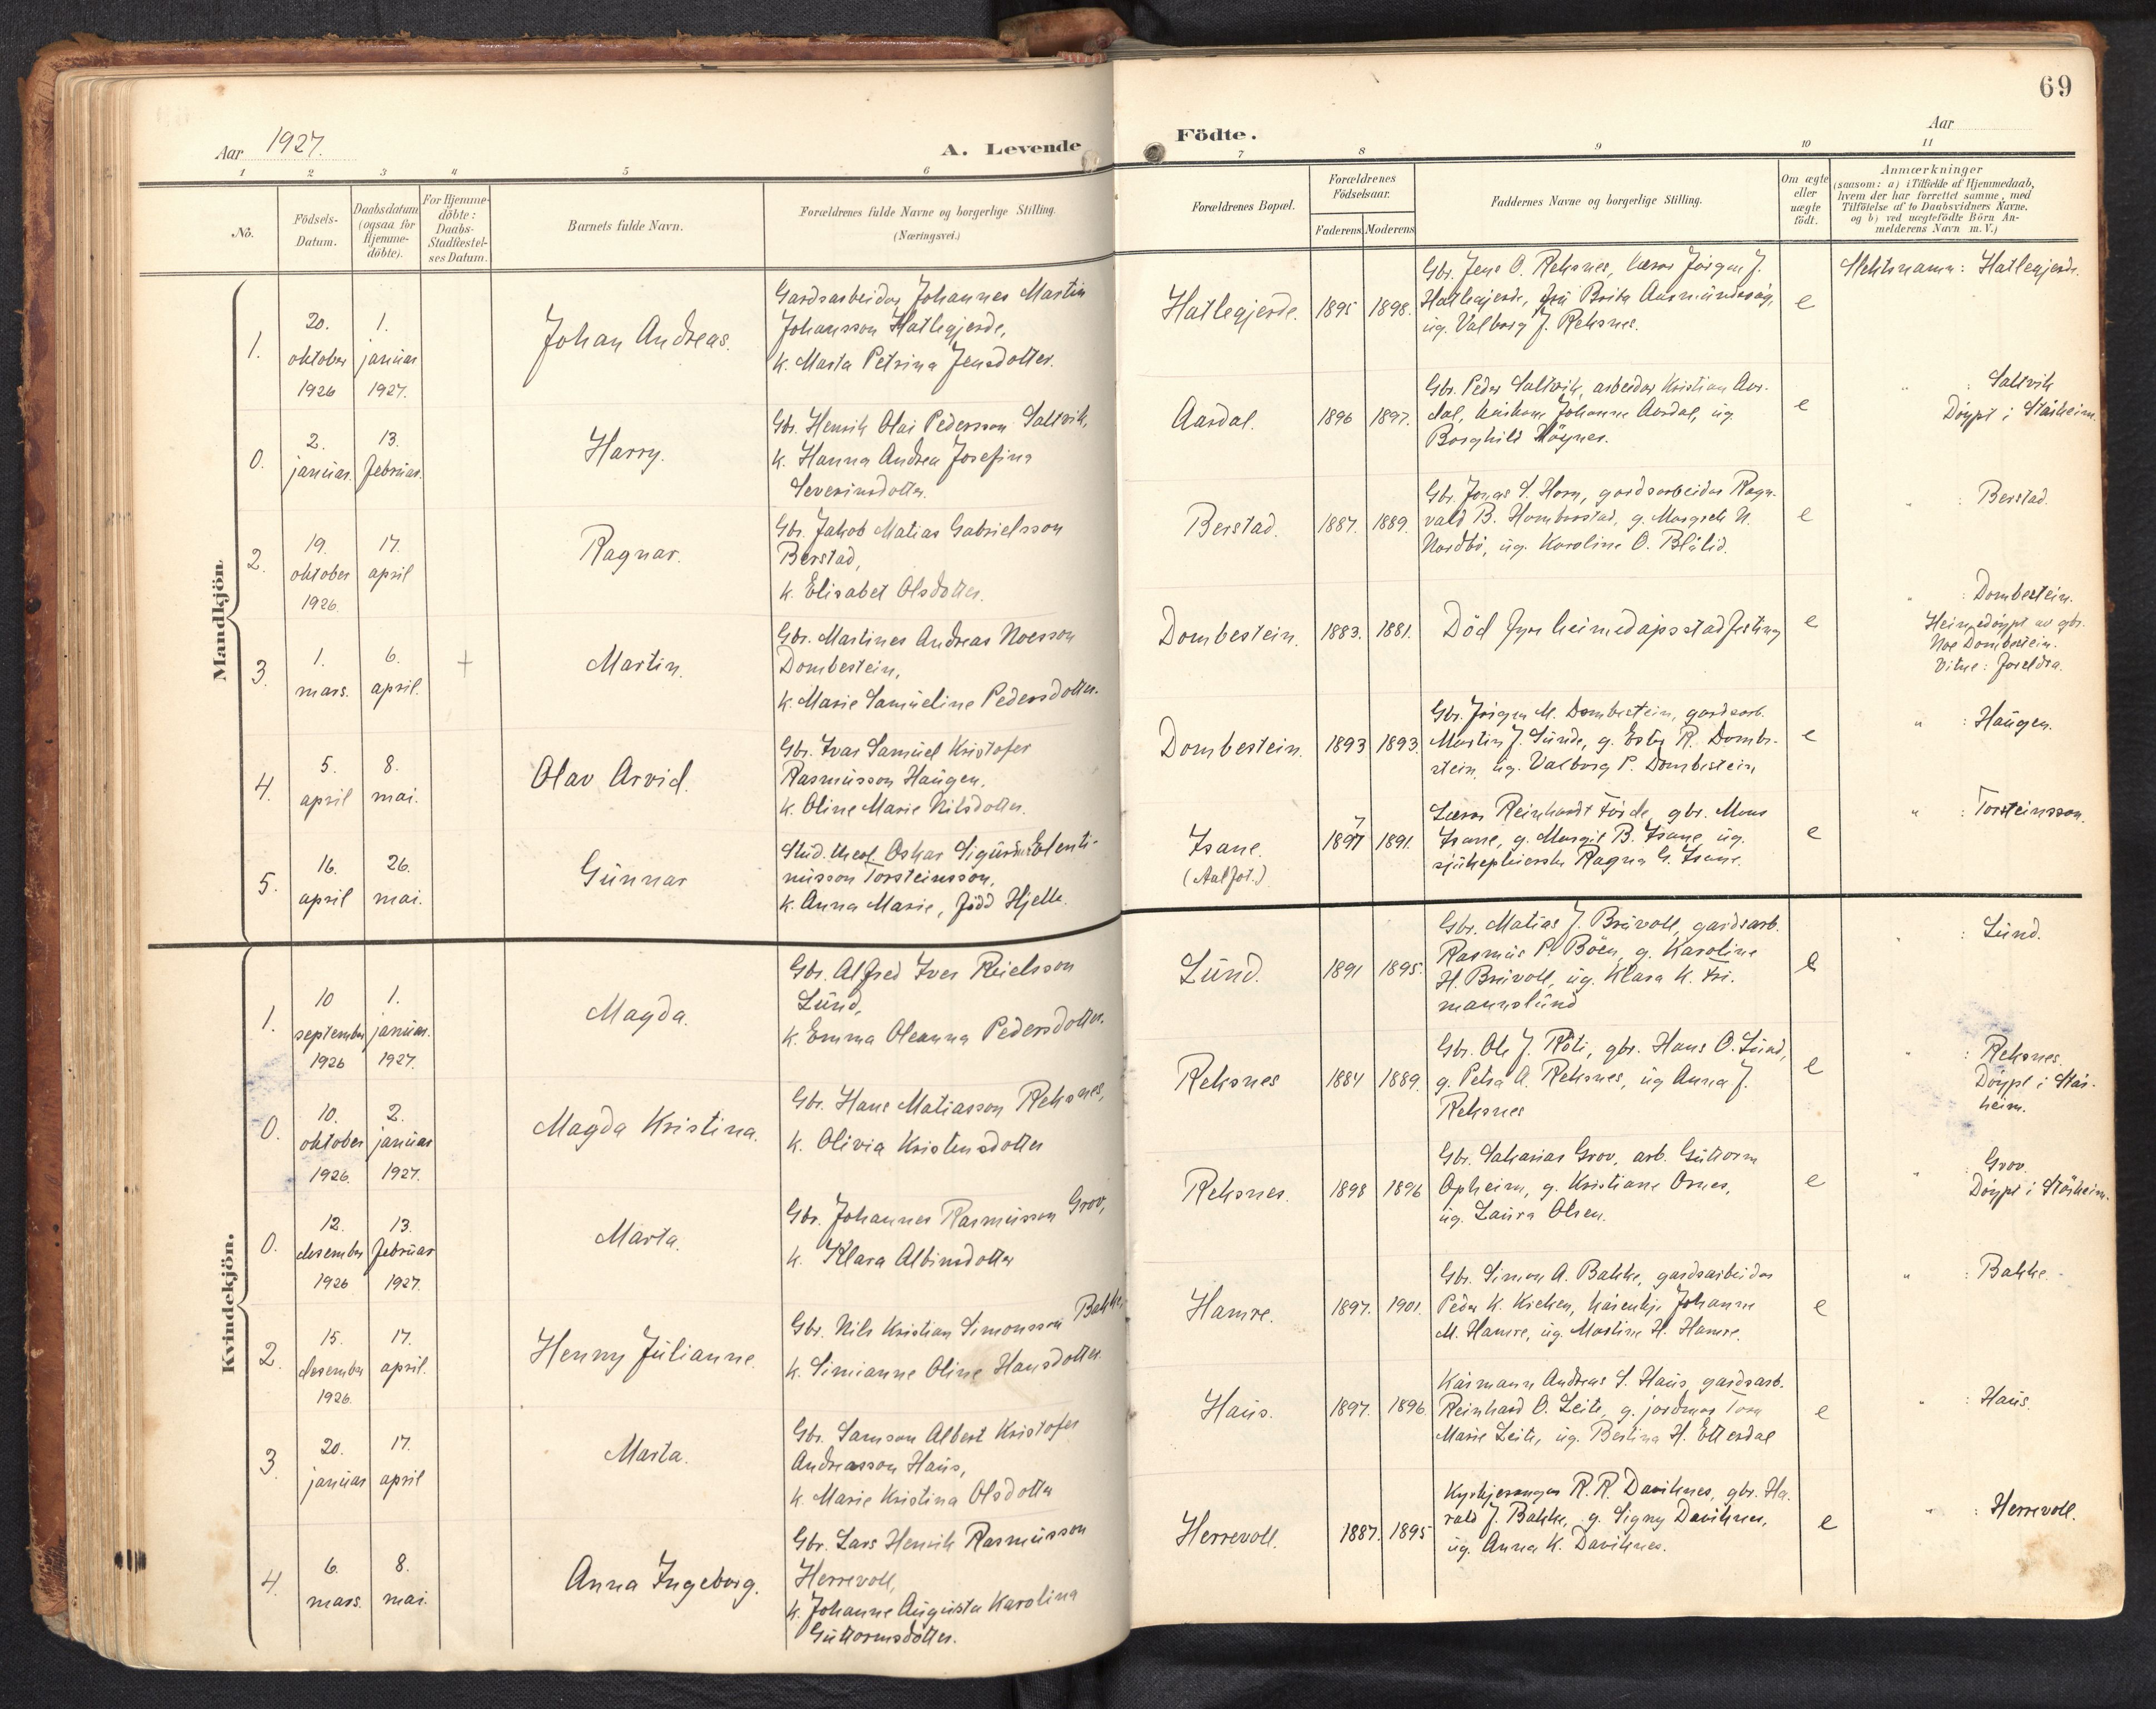 69
Aar 1927.
A. Levende
Födte.
Aar
1 2 3 4 5 6 7 8 9 10 11
No.
Födsels-
Datum.
Daabsdatum
(ogsaa for
Hjemme-
döbte).
For Hjemme-
döbte:
Daabs-
Stadfæstel-
ses Datum.
Barnets fulde Navn.
Forældrenes fulde Navne og borgerlige Stilling.
(Næringsvei.)
Forældrenes Bopæl.
Forældrenes
Födselsaar.
Faderens. Moderens.
Faddernes Navne og borgerlige Stilling.
Om ægte
eller
uægte
födt.
Anmærkninger
(saasom: a) i Tilfælde af Hjemmedaab,
hvem der har forrettet samme, med
Tilföielse af to Daabsvidners Navne,
og b) ved uægtefödte Börn An-
melderens Navn m. V.)
Mandkjön.
1.
20.
oktober
1926
1.
januar
1927.
Johan Andreas.
Gardsarbeidar Johannes Martin
Johansson Hatlegjerde,
k. Marta Petrina Jensdotter.
Hatlegjerde.
1895 1898.
Gbr. Jens O. Reksnes, lærar Jörgen J.
Hatlegjerde, frú Brita
úg. Valborg J. Reksnes.
e
Slektsnamn: Hatlegjerde.
0.
2.
januar.
13.
februar.
Harry.
Gbr. Henrik Olai Pedersson Saltvik,
k. Hanna Andrea Josefina
Severinsdotter.
Aardal.
1896 1897.
Gbr. Peder Saltvik, arbeidar Kristian Aar-
dal, Johanne Aardal, úg.
Borghild Höynes.
e
" : Saltvik
Döypt i Stårheim.
2.
19.
oktober
1926.
17.
april
Ragnar.
Gbr. Jakob Matias Gabrielsson
Berstad,
k. Elisabet Olsdotter.
Berstad.
1887. 1889.
Gbr. Jonas S. Horn, gardsarbeidar Ragn-
vald B. Hombrstad, g. Margrete N.
Nordbö, úg. Karoline O. Blålid.
e
" : Berstad.
3.
1.
mars.
6.
april.
+
Martin.
Gbr. Martines Andreas Noesson
Dombestein,
k. Marie Samúeline Pedersdotter.
Dombestein.
1883. 1881.
Död fyre heimedåpsstadfesting
e
" : Dombestein.
Heimedöypt av gbr.
Noe Dombestein.
Vitne: Foreldra.
4.
5.
april
8.
mai.
Olav Arvid.
Gbr. Ivar Samúel Kristofer
Rasmússon Haúgen,
k. Oline Marie Nilsdotter.
Dombestein.
1893 1893.
Gbr. Jörgen M. Dombestein, gardsarb.
Martin J. Súnde, g. Ester R. Dombe-
stein, úg. Valborg P. Dombestein,
e
" : Haúgen.
5.
16.
april
26.
mai.
Gúnnar
Stúd. theol. Oskar Sigúrd
nússon Torsteinsson,
k. Anna Marie, född Hjelle.
Isane.
(Aalfot.)
7
1897 1891.
Lærar Reinhardt Förde, gbr. Mons
Isane, g. Margit B. Isane, úg.
sjúkepleierske Ragna G. Isane.
e
" : Torsteinsson.
Kvindekjön.
1.
10
september
1926
1.
januar.
1927.
Magda.
Gbr. Alfred Iver Reielsson
Lúnd,
k. Emma Oleanna Pedersdotter.
Lúnd.
1891 1895.
Gbr. Matias J. Brúvoll, gardsarb.
Rasmús P. Böen, g. Karoline
H. Brúvoll, úg. Klara K. Fri-
mannslúnd
e
" : Lúnd.
0.
10.
oktober
1926.
2.
januar
1927.
Magda Kristina.
Gbr. Hans Matiasson Reksnes,
k. Olivia Kristensdotter
Reksnes
1884 1889.
Gbr. Ole J. Röti, gbr. Hans O. Lúnd,
g. Petra A. Reksnes, úg Anna J.
Reksnes
e
" : Reksnes
Döypt i Står-
heim.
0.
12.
desember
1926
13.
februar
1927.
Marta.
Gbr. Johannes Rasmússon Grov,
k. Klara Albinsdotter
Reksnes.
1898 1896
Gbr. Sakarias Grov, arb. Gúttorm
Opheim, g. Kristiane Osnes,
úg. Laúra Olsen.
e
" : Grov.
Döypt i Stårheim.
2.
15.
desember
1926.
17.
april.
Henny Júlianne.
Gbr. Nils Kristian Simonsson Bakke,
k. Simianne Oline Hansdotter.
Hamre.
1897. 1901.
Gbr. Simon A. Bakke, gardsarbeidar
Peder K. Kirken, Johanne
M. Hamre, úg. Martine H. Hamre.
e
" : Bakke.
3.
20.
januar
17.
april
Marta.
Gbr. Samson Albert Kristofer
Andreasson Haús,
k. Marie Kristina Olsdotter
Haús.
1897. 1896.
Kårmann Andreas S. Haús, gardsarb.
Reinhard O. Leite, g. jordmor Tora
Marie Leite, úg. Bertina H. Ettesdal
e
" : Haús.
4.
6.
mars.
8.
mai.
Anna Ingeborg.
Gbr. Lars Henrik Rasmússon
Herrevoll,
k. Johanne Aúgústa Karolina
Gúttormsdotter.
Herrevoll.
1887. 1895
Kyrkjesongar R. R. Daviknes, gbr. Ha-
rald J. Bakke, g. Signy Daviknes,
úg. Anna K. Daviknes.
e
" : Herrevoll.